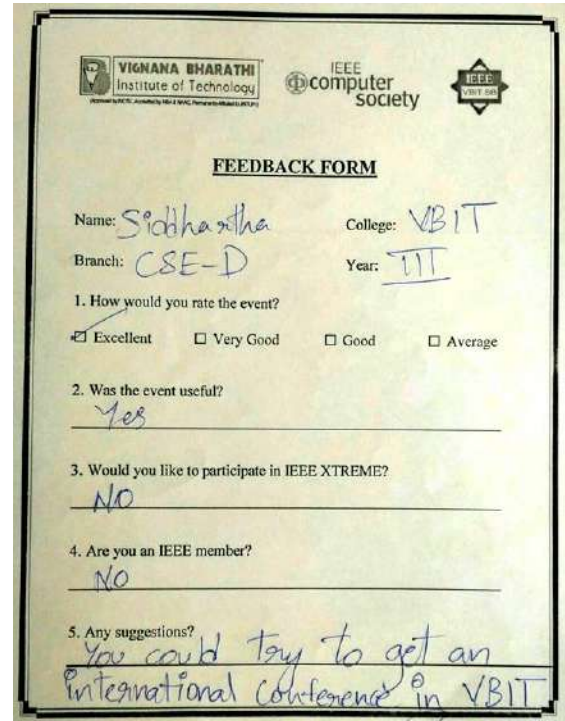 VIGNANA BHARATHI
Institute of Technology
IEEE
computer
society
IEEE
VBIT SB
FEEDBACK FORM
Name: Siddhartha College: VBIT
Branch: CSE-D Year: III
1. How would you rate the event?
☑ Excellent ☐ Very Good ☐ Good ☐ Average
2. Was the event useful?
Yes
3. Would you like to participate in IEEE XTREME?
NO
4. Are you an IEEE member?
NO
5. Any suggestions?
You could try to get an
international conference in VBIT